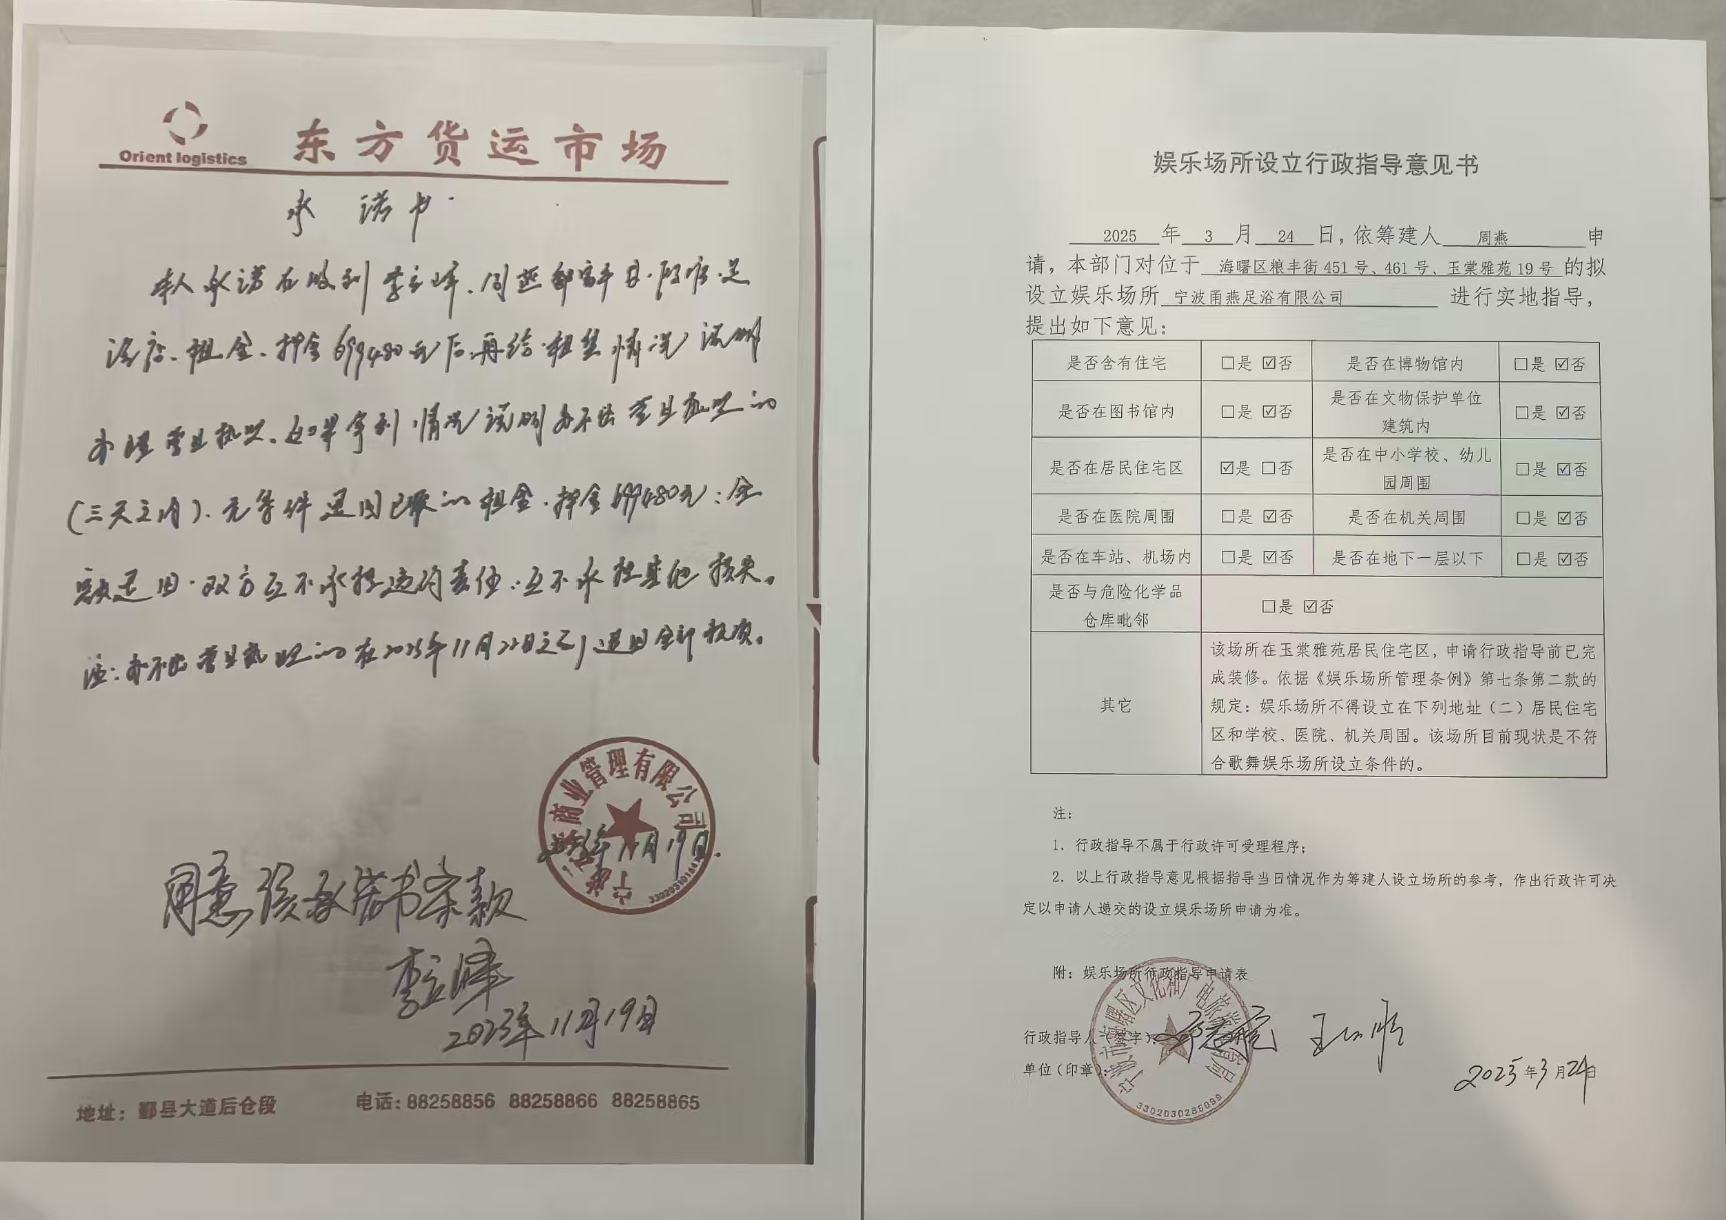 Orient logistics
东方货运市场
承诺书
本人承诺在收到李立峰、周燕
浴店、租金、押金699480元后,再给租赁情况说明
办理营业执照。如果拿到情况说明办不出营业执照的
(三天之内)、无条件退回已缴的租金、押金699480元:全
额退回,双方互不承担违约责任,互不承担其他损失。
注:办不出营业执照的在2023年11月22日之前退回全部款项。
商业管理有限公司
11月19日.
同意该承诺书条款
李立峰
2023年11月19日
地址:鄞县大道后仓段
电话:88258856 88258866 88258865
娱乐场所设立行政指导意见书
2025 年 3 月 24 日,依筹建人 周燕 申
请,本部门对位于 海曙区粮丰街451号、461号、玉棠雅苑19号 的拟
设立娱乐场所 宁波甬燕足浴有限公司 进行实地指导,
提出如下意见:
是否含有住宅 □是 ☑否 是否在博物馆内 □是 ☑否
是否在图书馆内 □是 ☑否 是否在文物保护单位
建筑内 □是 ☑否
是否在居民住宅区 ☑是 □否 是否在中小学校、幼儿
园周围 □是 ☑否
是否在医院周围 □是 ☑否 是否在机关周围 □是 ☑否
是否在车站、机场内 □是 ☑否 是否在地下一层以下 □是 ☑否
是否与危险化学品
仓库毗邻 □是 ☑否
其它
该场所在玉棠雅苑居民住宅区,申请行政指导前已完
成装修。依据《娱乐场所管理条例》第七条第二款的
规定:娱乐场所不得设立在下列地址(二)居民住宅
区和学校、医院、机关周围。该场所目前现状是不符
合歌舞娱乐场所设立条件的。
注:
1. 行政指导不属于行政许可受理程序;
2. 以上行政指导意见根据指导当日情况作为筹建人设立场所的参考,作出行政许可决
定以申请人递交的设立娱乐场所申请为准。
附:娱乐场所行政指导申请表
行政指导人(签字):
单位(印章):
2025年3月24日
3302030285099